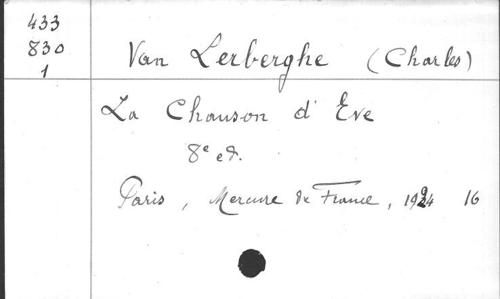 433
830
1
Van Lerberghe (Charles)
La Chanson d'Ève
8e ed.
Paris, Mercure de France, 1924 16